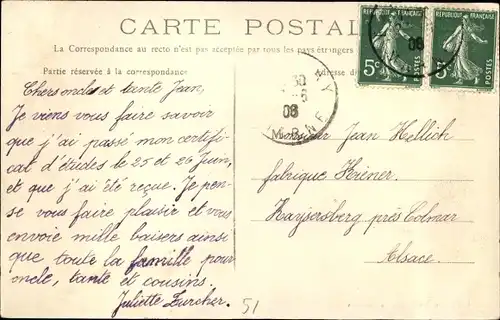 CARTE POSTAL
La Correspondance au recto n'est pas acceptée par tous les pays étrangers
Partie réservée à la correspondance
Adresse d
REPUBLIQUE FRANÇAISE
5c
REPUBLIQUE FRANÇAISE
5c
08
30
08
Chers oncle et tante Jean,
Je viens vous faire savoir
que j'ai passé mon certifi
cat d'études le 25 et 26 Juin,
et que j'ai été reçue. Je pen-
se vous faire plaisir et vous
envoie mille baisers ainsi
que toute la famille pour
oncle, tante et cousins.
Juliette Zurcher.
Monsieur Jean Hellich
fabrique Heiner
Kaysersberg près Colmar
Alsace.
51